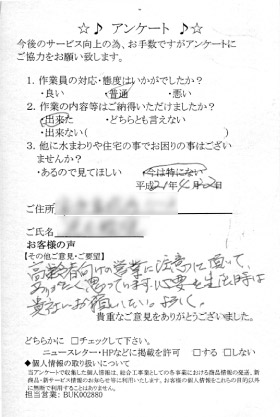 ☆♪ アンケート ♪☆
今後のサービス向上の為、お手数ですがアンケートに
ご協力をお願い致します。
1. 作業員の対応・態度はいかがでしたか？
・良い ・普通 ・悪い
2. 作業の内容等はご納得いただけましたか？
・出来た ・どちらとも言えない
・出来ない( )
3. 他に水まわりや住宅の事でお困りの事はござい
ませんか？
・あるので見てほしい ・今は特にない
平成21年4月2日
ご住所
ご氏名
お客様の声
【その他ご意見・ご要望】
高齢者向けの営業に注意に頂いて、
ありがたく思っています 必要を生じた時は
貴社にお願いしたい。よろしく。
貴重なご意見をありがとうございました。
どちらかに □チェックして下さい。
ニュースレター・HPなどに掲載を許可 □する □しない
◆個人情報の取り扱いについて
当アンケートで収集した個人情報は、総合工事業としての各事業における商品情報の発送、新
商品・新サービス情報のお知らせ等に利用いたします。お客様の個人情報をこれらの目的以外
に無断で利用することはありません。
担当営業: BUK002880